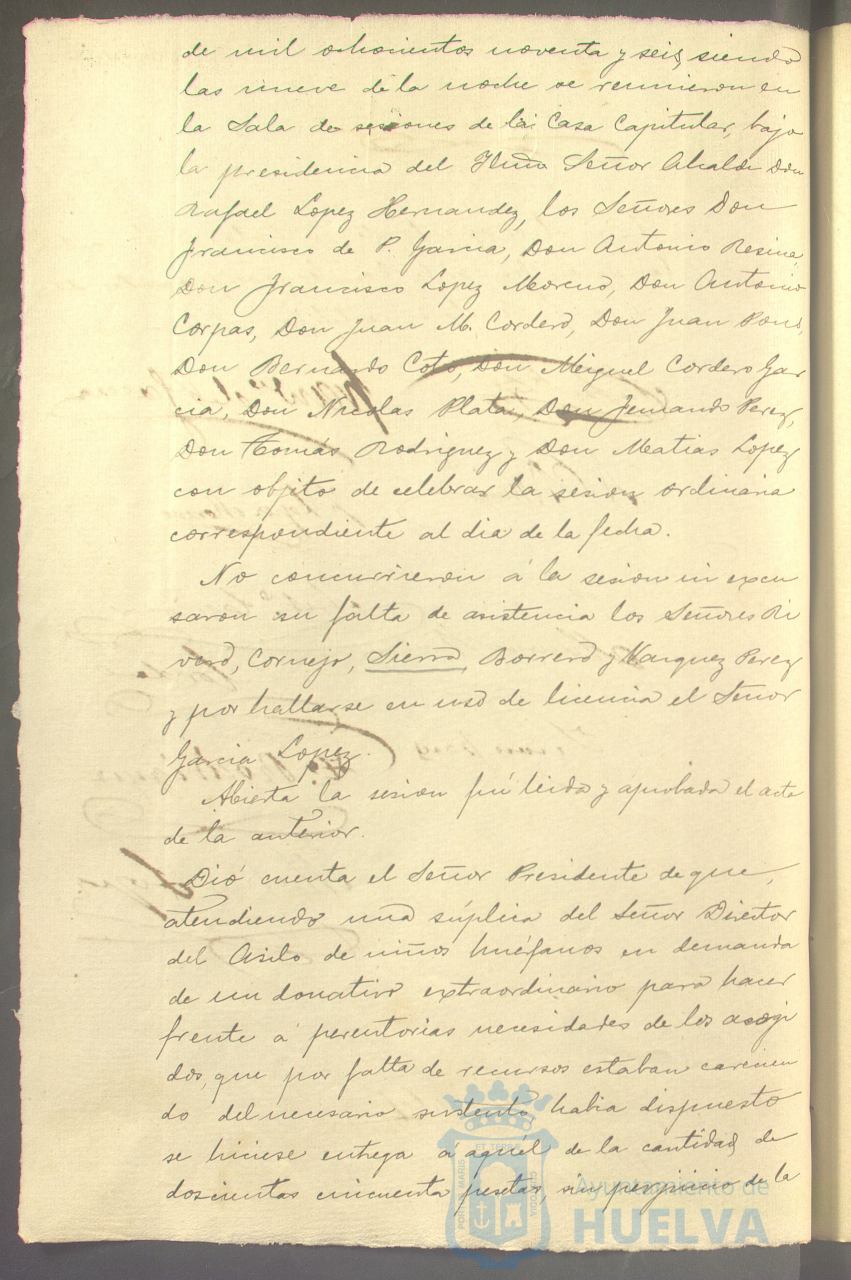 de mil ochocientos noventa y seis, siendo
las nueve de la noche se reunieron en
la Sala de sesiones de la Casa Capitular, bajo
la presidencia del Ylmo Señor Alcalde Don
Rafael Lopez Hernandez, los Señores Don
Francisco de P. Garcia, Don Antonio Resine,
Don Francisco Lopez Moreno, Don Antonio
Corpas, Don Juan M. Cordero, Don Juan Pons,
Don Bernardo Coto, Don Miguel Cordero Gar
cia, Don Nicolas Plata, Don Fernando Perez,
Don Tomás Rodriguez y Don Matias Lopez
con objeto de celebrar la sesion ordinaria
correspondiente al dia de la fecha.
No concurrieron á la sesion ni excu
saron su falta de asistencia los Señores Ri
vero, Cornejo, Sierra, Borrero y Marquez Perez
y por hallarse en uso de licencia el Señor
Garcia Lopez.
Abierta la sesion fué leida y aprobada el acta
de la anterior.
Dió cuenta el Señor Presidente de que,
atendiendo una súplica del Señor Director
del Asilo de niños huérfanos en demanda
de un donativo extraordinario para hacer
frente á perentorias necesidades de los acogi
dos, que por falta de recursos estaban carecien
do del necesario sustento habia dispuesto
se hiciese entrega á aquél de la cantidad de
doscientas cincuenta pesetas, sin perjuicio de la
PORTUS MARIS ET TERRE CUSTODIA
Ayuntamiento de
HUELVA